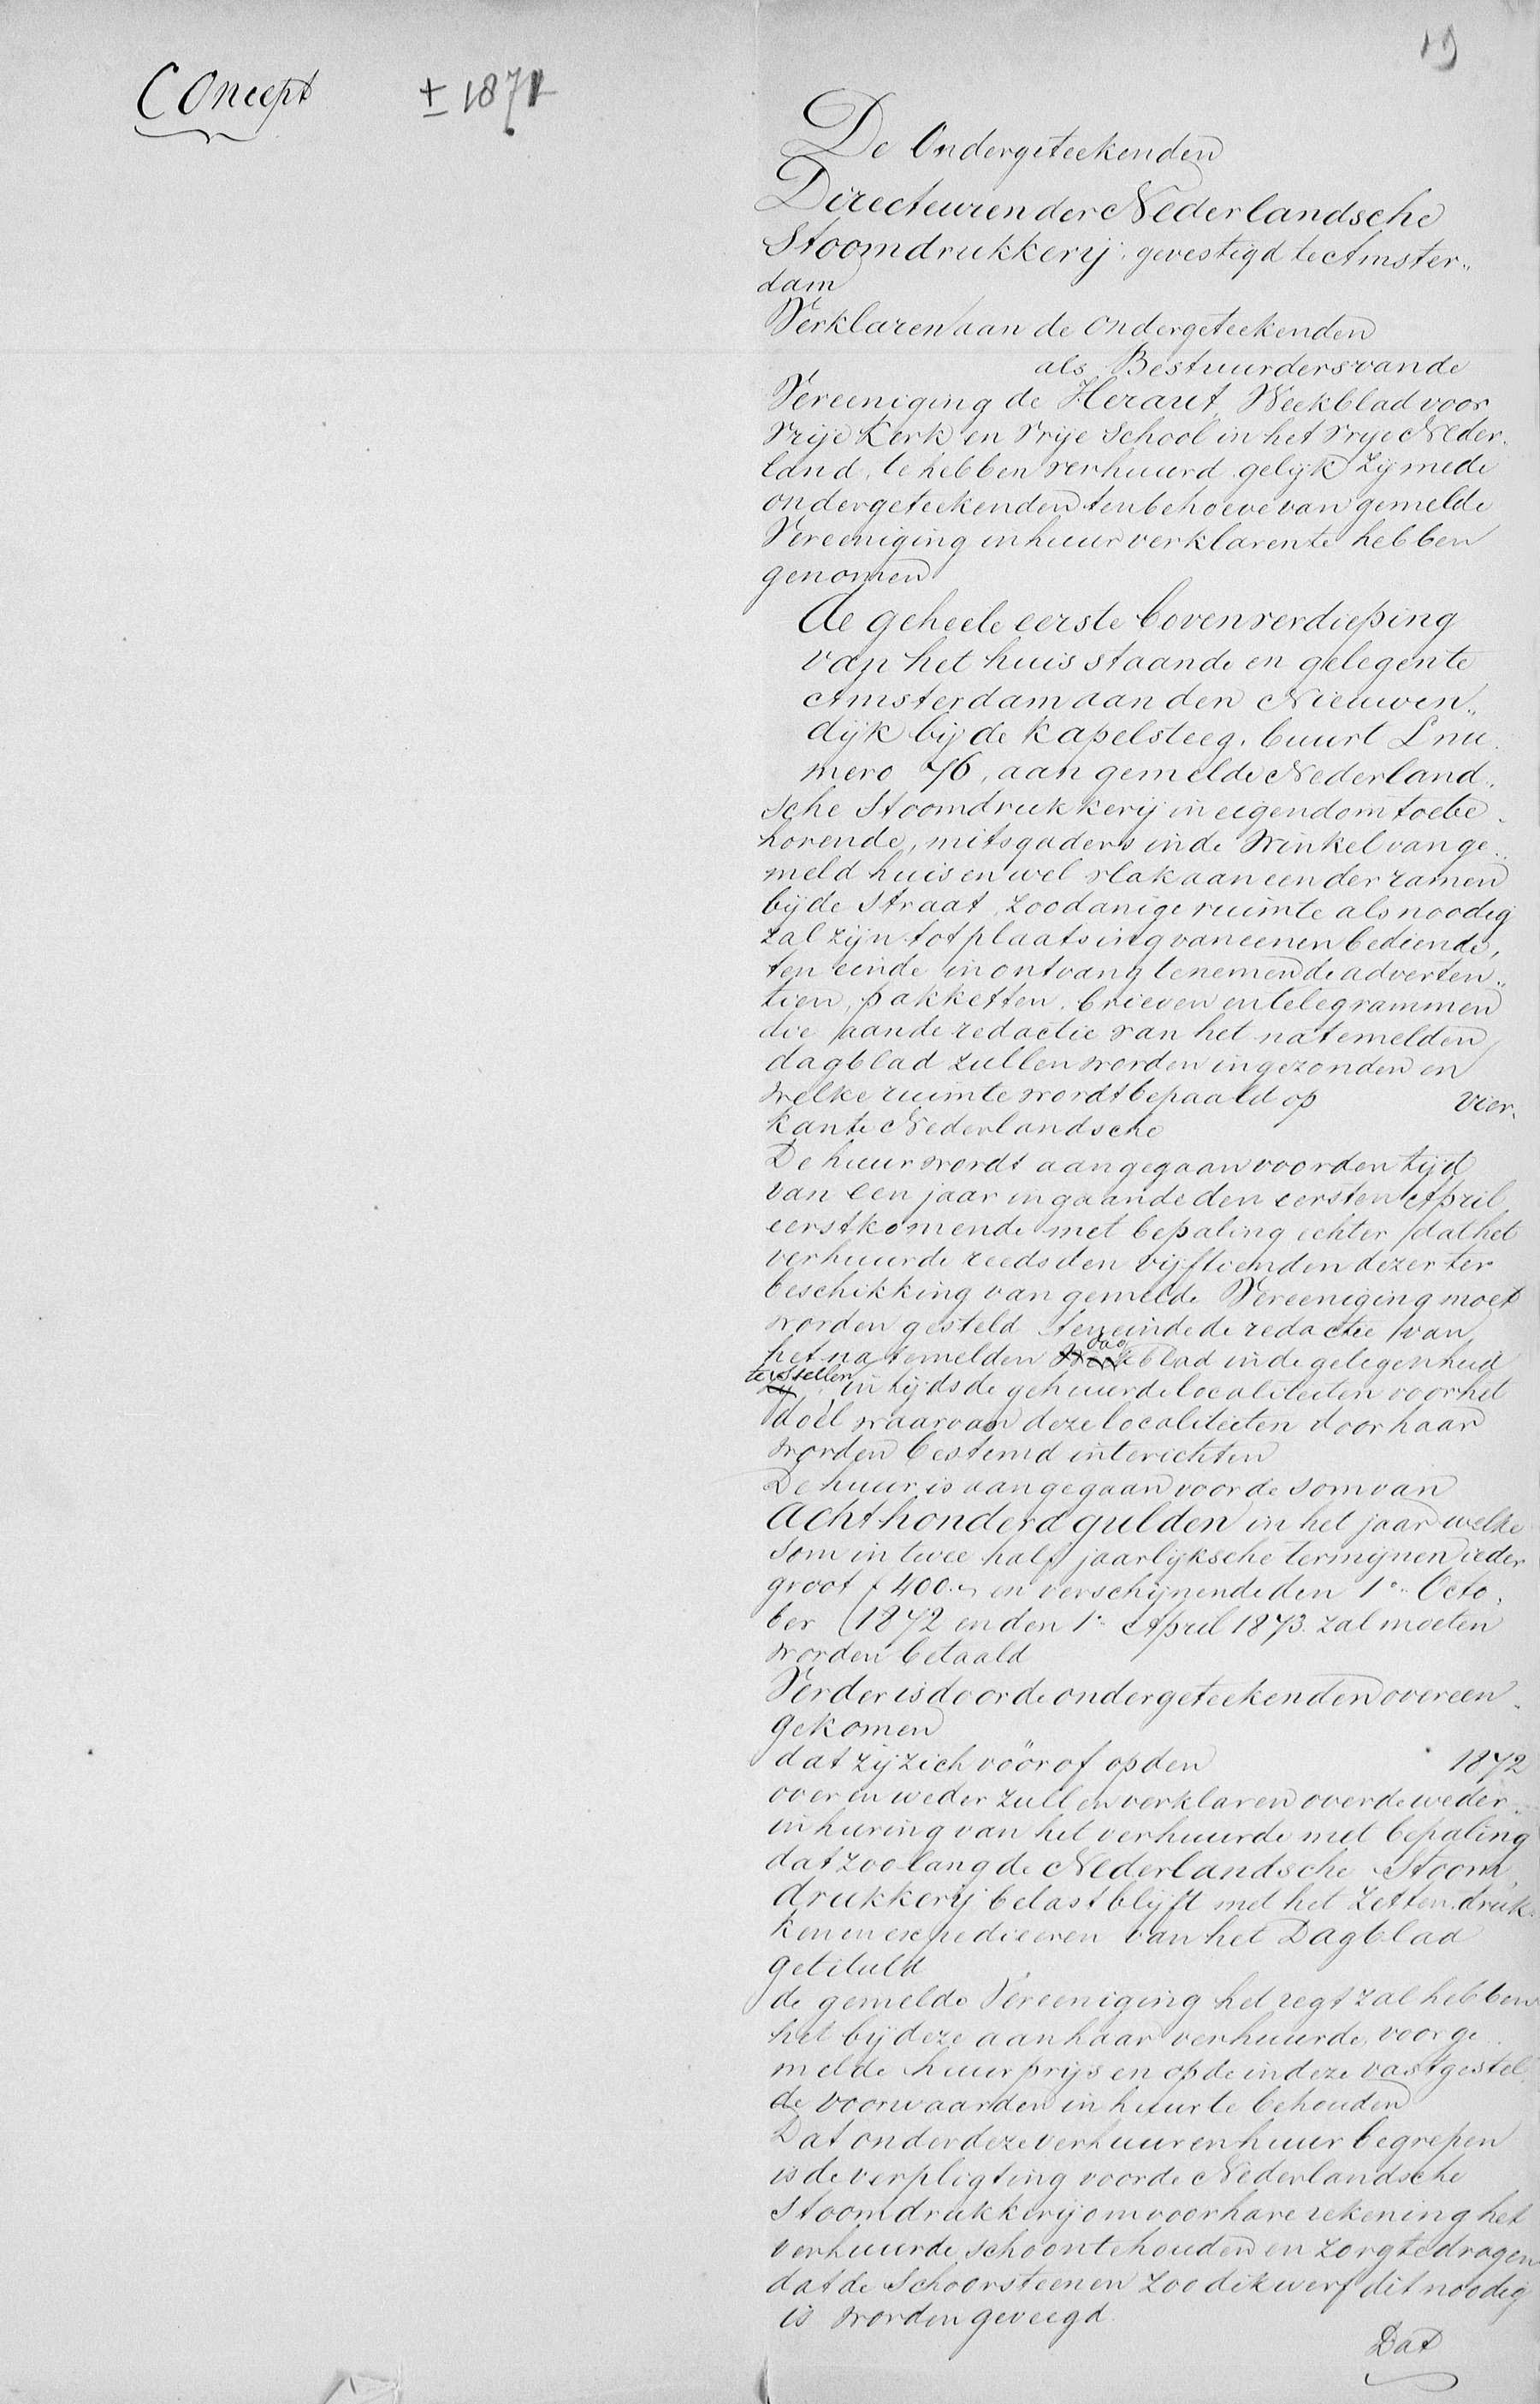 19
Concept ± 1871
De Ondergeteekenden
Directeuren der Nederlandsche
Stoomdrukkerij, gevestigd te Amster„
dam
Verklaren aan de ondergeteekenden
als Bestuurders van de
Vereeniging de Heraut, Weekblad voor
Vrije Kerk en Vrije School in het Vrije Neder„
land, te hebben verhuurd gelijk zij mede
ondergeteekenden ten behoeve van gemelde
Vereeniging in huur verklaren te hebben
genomen
de geheele eerste bovenverdieping
van het huis staande en gelegen te
Amsterdam aan den Nieuwen„
dijk bij de Kapelsteeg, buurt L nu„
mero 76, aan gemelde Nederland„
sche Stoomdrukkerij in eigendom toebe„
horende, mitsgaders in de Winkel van ge„
meld huis en wel vlak aan een der ramen
bij de Straat, zoodanige ruimte als noodig
zal zijn tot plaatsing van eenen bediende,
ten einde in ontvang te nemen de adverten„
tien, pakketten, brieven en telegrammen
die aan de redactie van het natemelden
dagblad zullen worden ingezonden en
welke ruimte wordt bepaald op vier„
kante Nederlandsche
De huur wordt aangegaan voor den tijd
van een jaar ingaande den eersten April
eerstkomende met bepaling echter dat het
verhuurde reeds den vijftienden dezer ter
beschikking van gemelde Vereeniging moet
worden gesteld ten einde de redactie van
dag
het natemelden blad in de gelegenheid
te stellen
zij in tijds de gehuurde localiteiten voor het
doel waarvan deze localiteiten door haar
worden bestemd interichten
De huur is aangegaan voor de som van
Achthonderd gulden in het jaar welke
Som in twee half jaarlijksche termijnen ieder
groot f 400.„ en verschijnende den 1e Octo„
ber 1872 en den 1e April 1873. zal moeten
worden betaald
Verder is door de ondergeteekenden overeen„
gekomen
dat zij zich vöör of op den 1872
over en weder zullen verklaren over de weder„
inhuring van het verhuurde met bepaling
dat zoo lang de Nederlandsche Stoom„
drukkerij belast blijft met het Zetten druk„
ken en expedieeren van het Dagblad
getituld
de gemelde Vereeniging het regt zal hebben
het bij deze aan haar verhuurde, voor ge„
melde huurprijs en op de in deze vastgestel„
de voorwaarden in huur te behouden
Dat onder deze verhuur en huur begrepen
is de verpligting voor de Nederlandsche
Stoomdrukkerij om voor hare rekening het
verhuurde schoon te houden en zorg te dragen
dat de Schoorsteenen zoo dikwerf dit noodig
is worden geveegd.
Dat